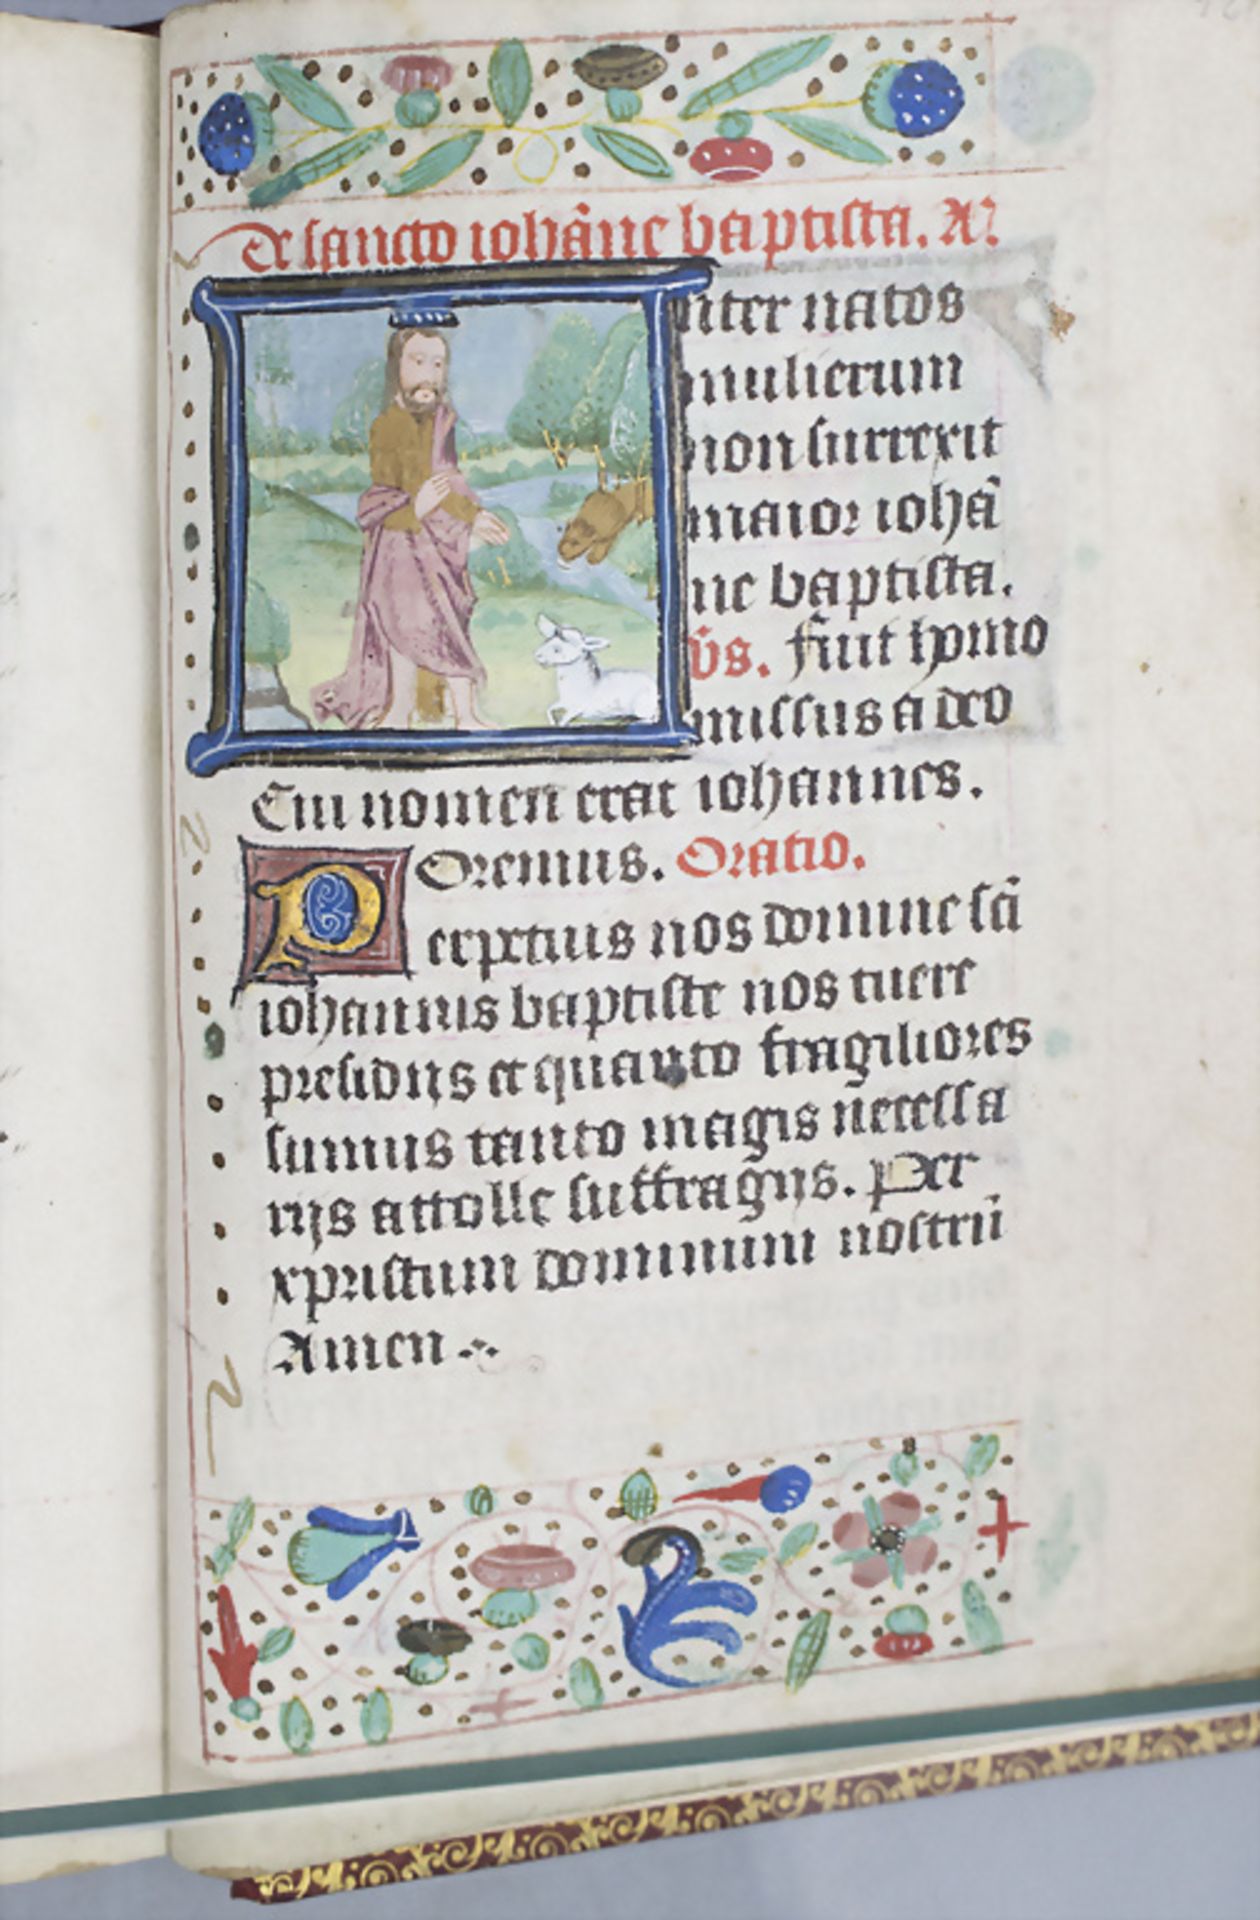 De sancto iohãne baptista. A῀.
Inter natos
mulierum
non surrexit
maior iohã
ne baptista.
v̄s. Fuit homo
missus a deo
Cui nomen erat iohannes.
Oremus. Oratio.
Perpetuis nos domine sci̅
iohannis baptiste nos tuere
presidijs et quanto fragiliores
sumus tanto magis necessa
rijs attolle suffragijs. Per
xpristum dominum nostrū
Amen